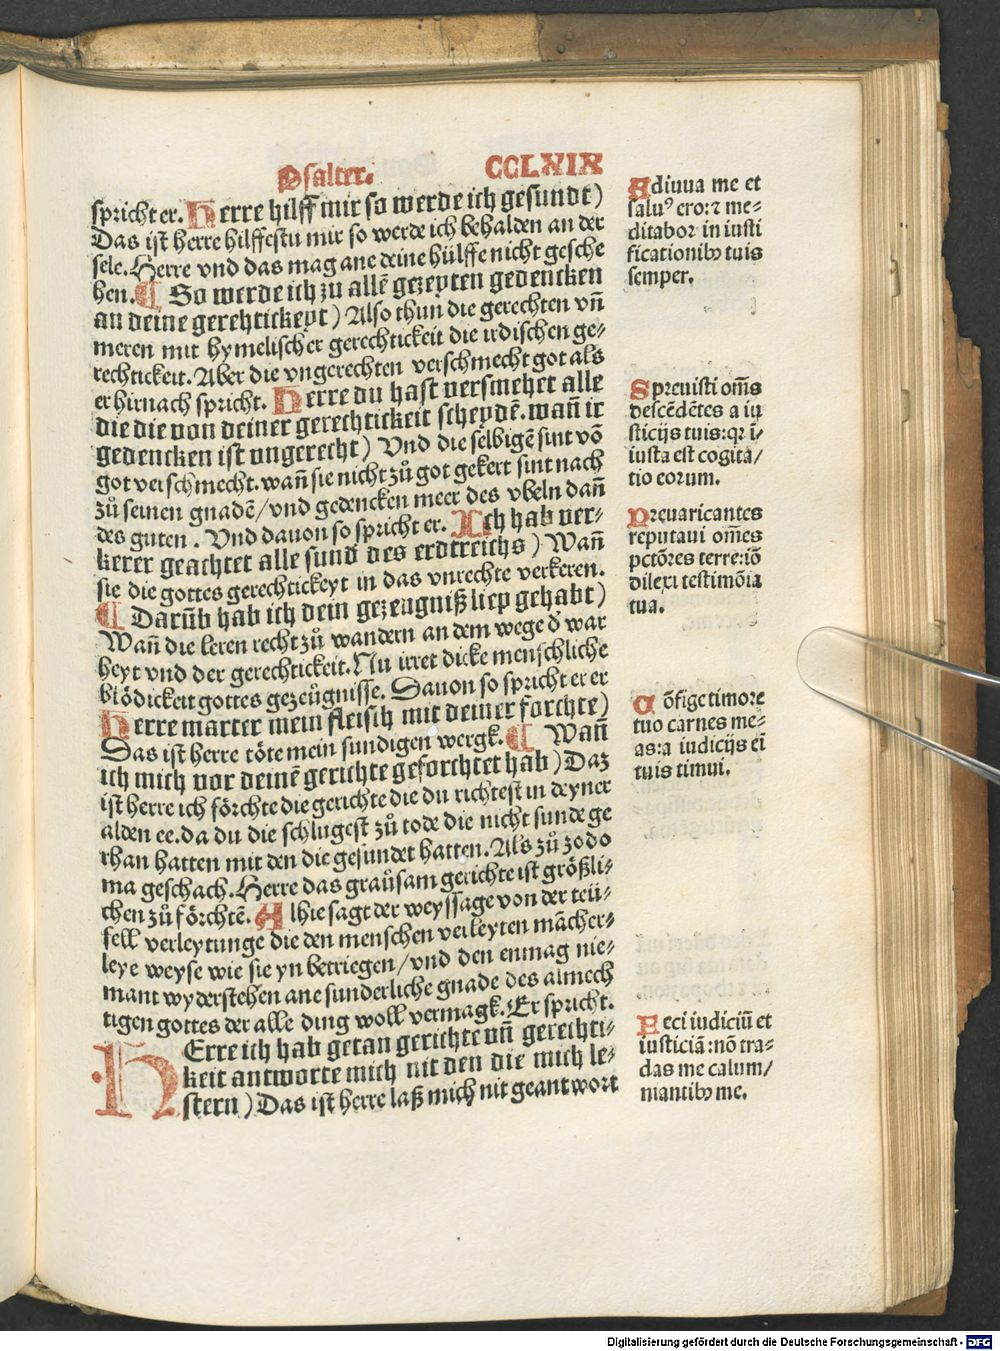 Psalter.
CCLXIX
spricht er. Herre hilff mir so werde ich gesundt)
Das ist herre hilffestu mir so werde ich behalden an der
sele. Herre vnd das mag ane deine hülffe nicht gesche
hen. ¶ So werde ich zu allē gezeyten gedencken
an deine gerehtickeyt) Also thun die gerechten vn̄
meren mit hymelischer gerechtickeit die irdischen ge⸗
rechtickeit. Aber die vngerechten verschmecht got als
er hirnach spricht. Herre du hast versmehet alle
die die von deiner gerechtickeit scheydē. wan̄ ir
gedencken ist vngerecht) Vnd die selbigē sint vō
got verschmecht. wan̄ sie nicht zů got gekert sint nach
zů seinen gnadē/vnd gedencken meer des vbeln dan̄
des guten. Vnd dauon so spricht er. Ich hab ver⸗
kerer geachtet alle sund des erdtreichs) Wan̄
sie die gottes gerechtickeyt in das vnrechte verkeren.
¶ Darūb hab ich dein gezeugniß liep gehabt)
Wan̄ die leren recht zů wandern an dem wege d̄ war
heyt vnd der gerechtickeit. Nu irret dicke menschliche
blödickeit gottes gezeůgnisse. Dauon so spricht er er
Herre marter mein fleisch mit deiner forchte)
Das ist herre töte mein sundigen wergk. ¶ Wan̄
ich mich vor deinē gerichte geforchtet hab) Daz
ist herre ich förchte die gerichte die du richtest in deyner
alden ee. da du die schlugest zů tode die nicht sunde ge
than hatten mit den die gesundet hatten. Als zů zodo
ma geschach. Herre das graůsam gerichte ist größli⸗
chen zů förchtē. Alhie sagt der weyssage von der teü⸗
fell verleytunge die den menschen verleyten mācher⸗
leye weyse wie sie yn betriegen/vnd den enmag nie⸗
mant wyderstehen ane sunderliche gnade des almech
tigen gottes der alle ding woll vermagk. Er spricht.
HErre ich hab getan gerichte vn̄ gerechti⸗
keit antworte mich nit den die mich le⸗
stern) Das ist herre laß mich nit geantwort
Adiuua me et
saluꝰ ero: ⁊ me⸗
ditabor in iusti
ficationibꝫ tuis
semper.
Spreuisti om̄s
descēdētes a iu
sticijs tuis: qꝛ ī⸗
iusta est cogita/
tio eorum.
Preuaricantes
reputaui om̄es
pctōres terre: iō
dilexi testimōia
tua.
Cōfige timore
tuo carnes me⸗
as: a iudicijs ei̅
tuis timui.
Feci iudiciū et
iusticiā: nō tra⸗
das me calum/
niantibꝫ me.
Digitalisierung gefördert durch die Deutsche Forschungsgemeinschaft - DFG